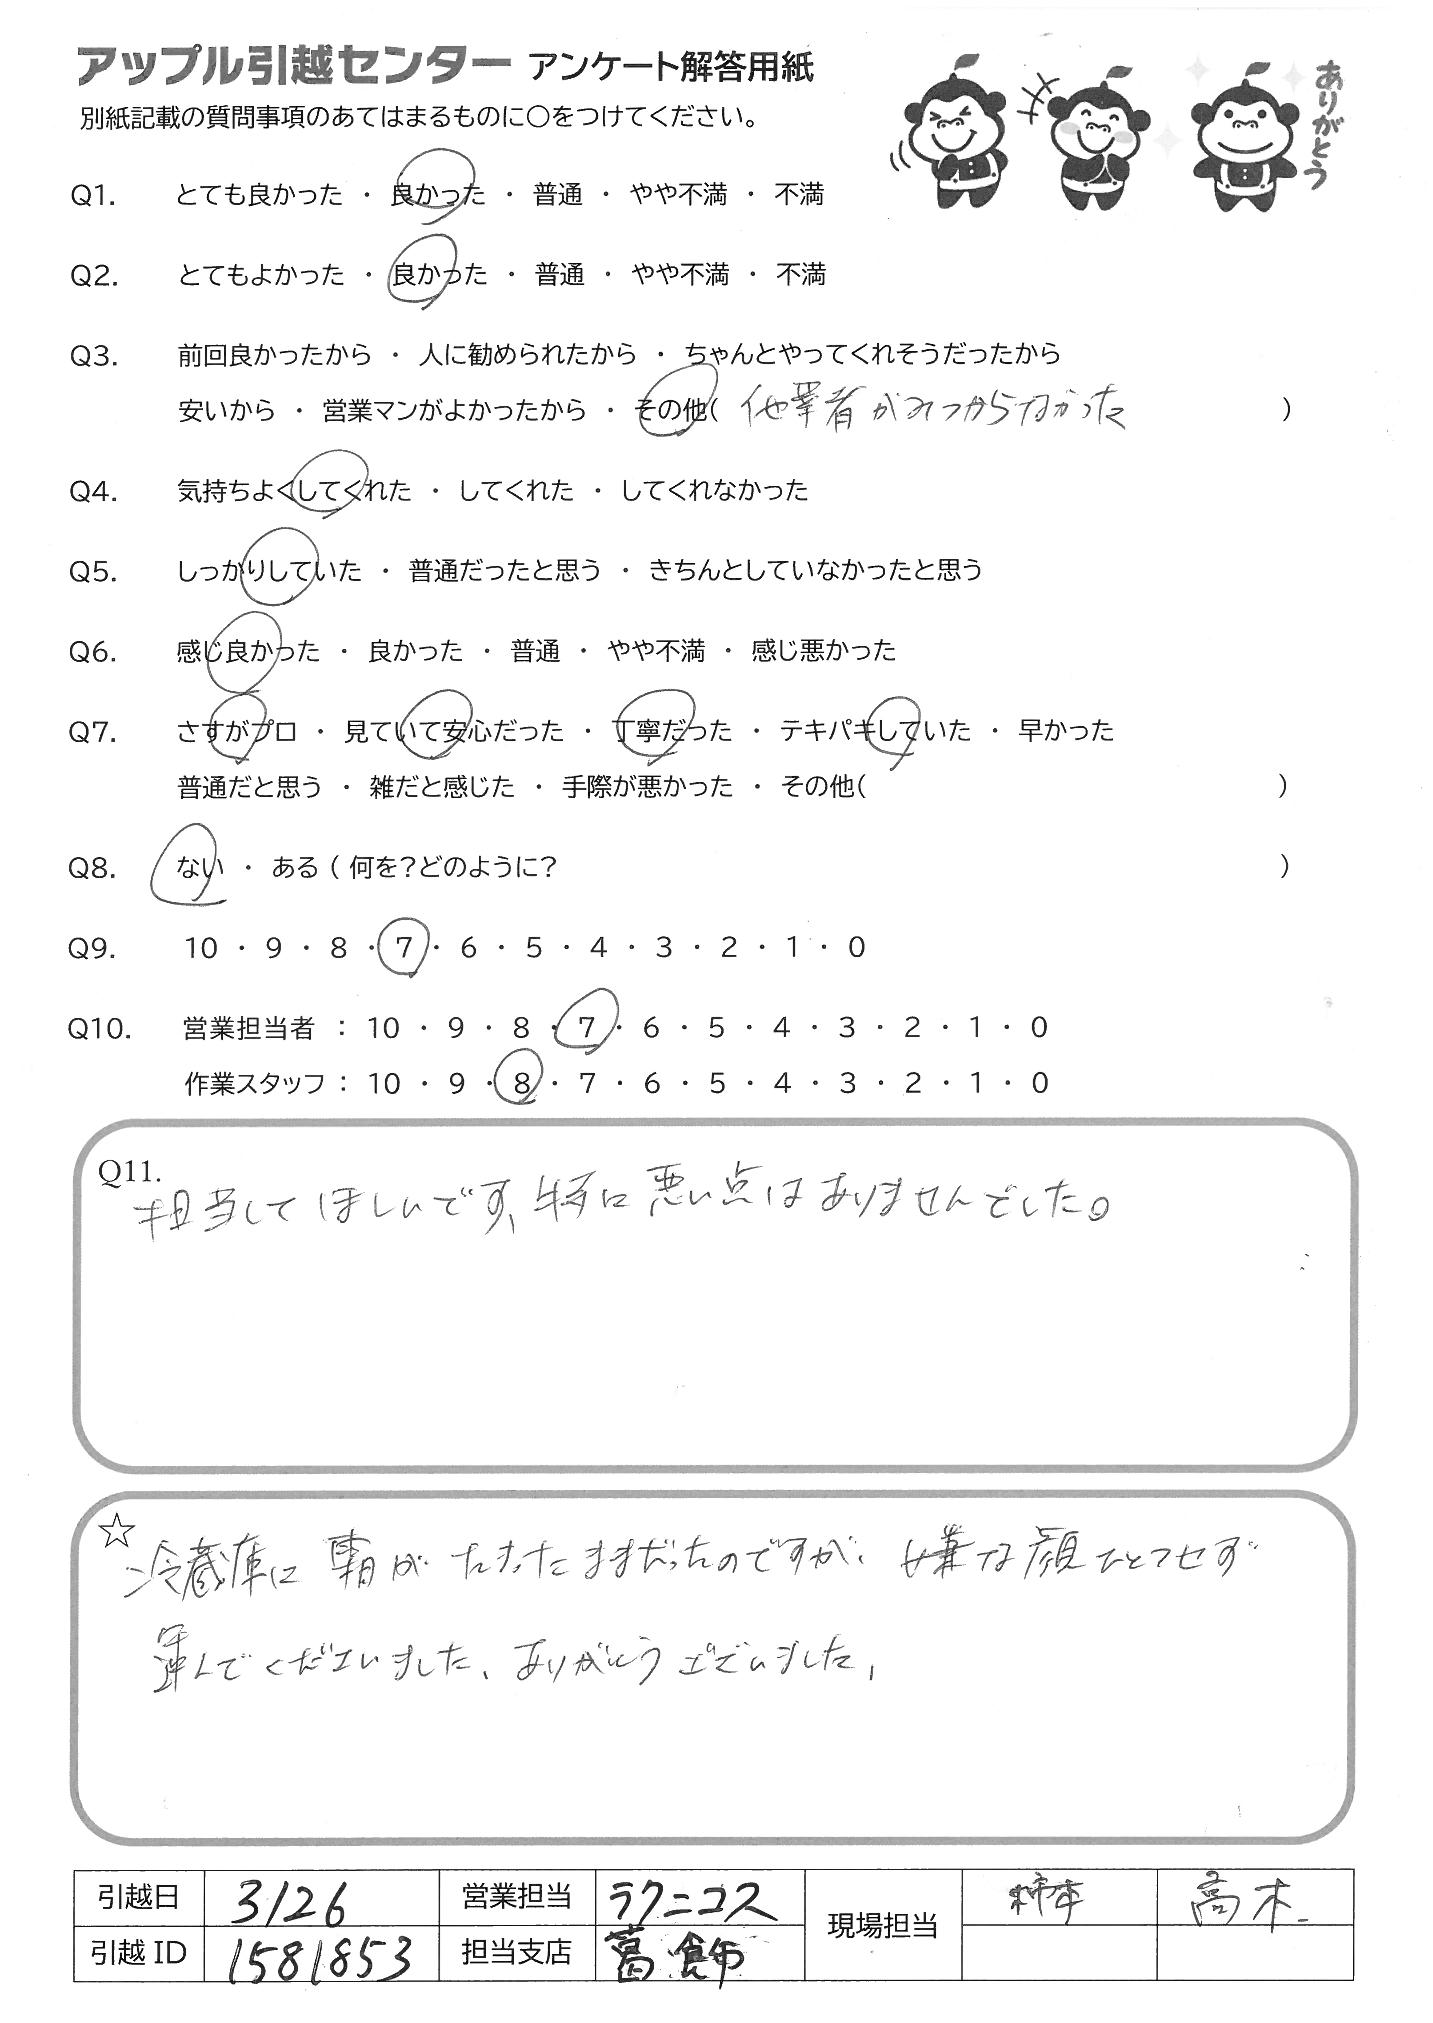 アップル引越センター アンケート解答用紙
ありがとう
別紙記載の質問事項のあてはまるものに○をつけてください。
Q1. とても良かった ・ 良かった ・ 普通 ・ やや不満 ・ 不満
Q2. とてもよかった ・ 良かった ・ 普通 ・ やや不満 ・ 不満
Q3. 前回良かったから ・ 人に勧められたから ・ ちゃんとやってくれそうだったから
安いから ・ 営業マンがよかったから ・ その他( 他業者がみつからなかった )
Q4. 気持ちよくしてくれた ・ してくれた ・ してくれなかった
Q5. しっかりしていた ・ 普通だったと思う ・ きちんとしていなかったと思う
Q6. 感じ良かった ・ 良かった ・ 普通 ・ やや不満 ・ 感じ悪かった
Q7. さすがプロ ・ 見ていて安心だった ・ 丁寧だった ・ テキパキしていた ・ 早かった
普通だと思う ・ 雑だと感じた ・ 手際が悪かった ・ その他( )
Q8. ない ・ ある ( 何を?どのように? )
Q9. 10 ・ 9 ・ 8 ・ 7 ・ 6 ・ 5 ・ 4 ・ 3 ・ 2 ・ 1 ・ 0
Q10. 営業担当者 : 10 ・ 9 ・ 8 ・ 7 ・ 6 ・ 5 ・ 4 ・ 3 ・ 2 ・ 1 ・ 0
作業スタッフ : 10 ・ 9 ・ 8 ・ 7 ・ 6 ・ 5 ・ 4 ・ 3 ・ 2 ・ 1 ・ 0
Q11.
担当してほしいです、特に悪い点はありませんでした。
☆
冷蔵庫に霜がたまったままだったのですが、嫌な顔ひとつせず
運んでくださいました、ありがとうございました、
引越日 3/26 営業担当 ラクニコス 現場担当 柿本 高木
引越ID 1581853 担当支店 葛飾